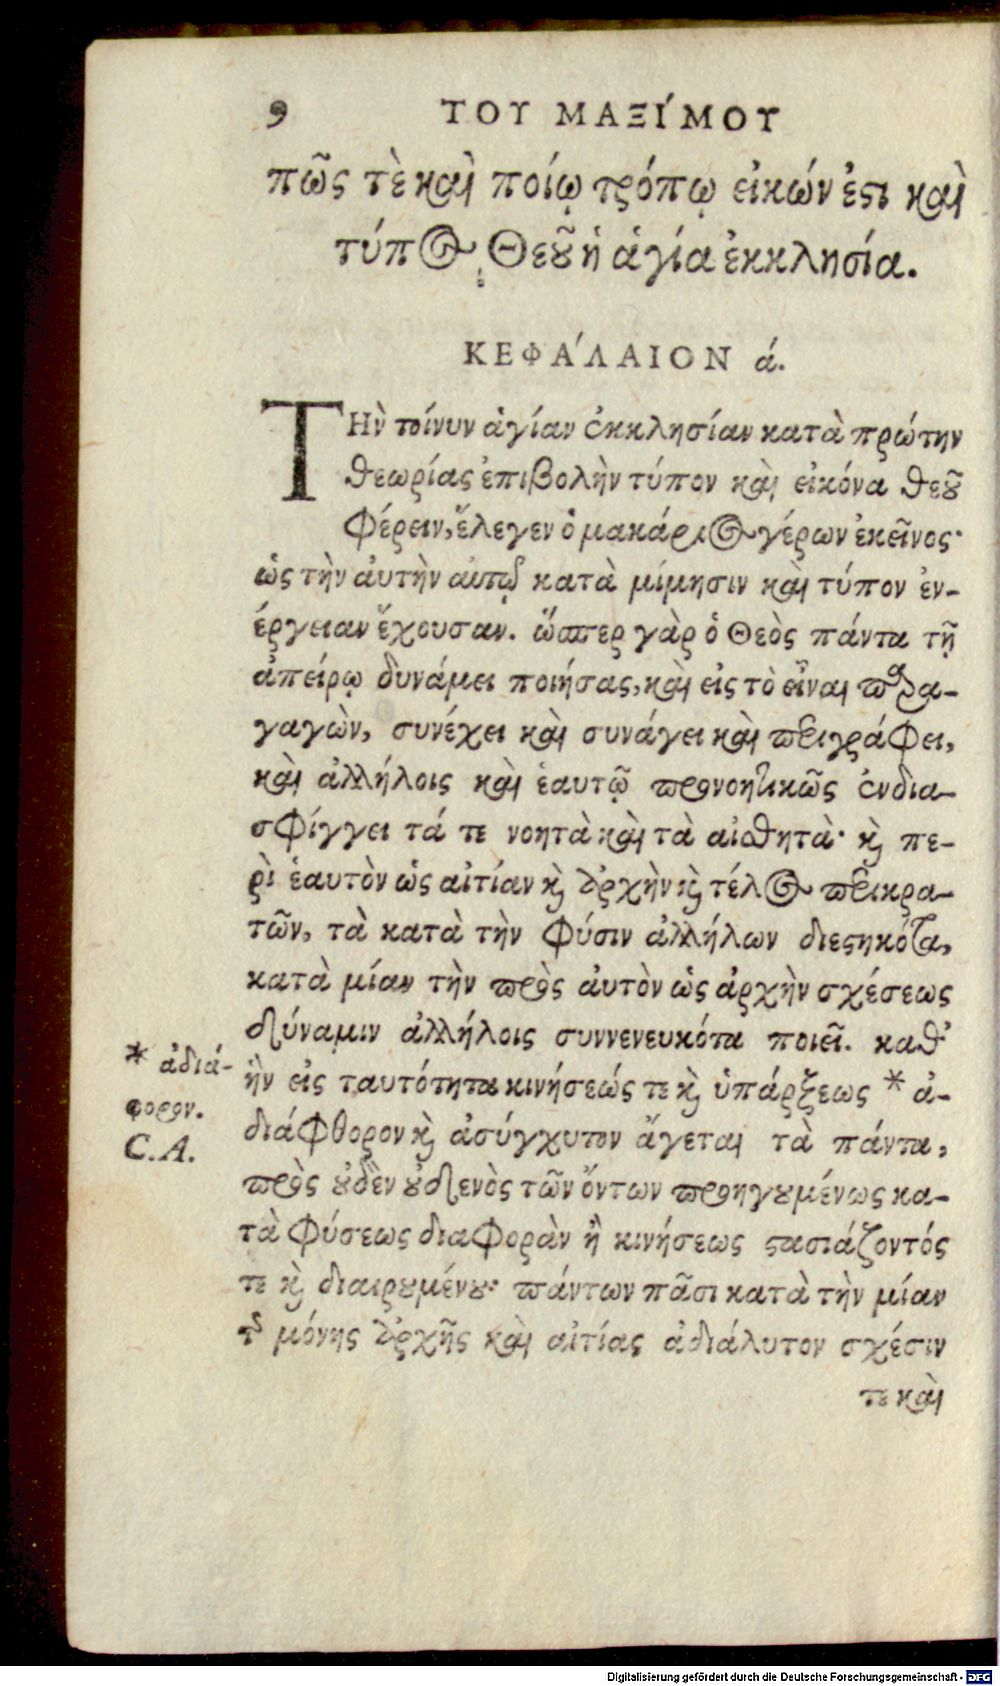 9 ΤΟΥ ΜΑΞΊΜΟΥ
πῶς τὲ καὶ ποίῳ τρόπῳ εἰκών ἐϛι καὶ
τύπος Θεȣ͂ ἡ ἁγία ἐκκλησία.
ΚΕΦΆΛΑΙΟΝ ά.
ΤΗν̀ τοίνυν ἁγίαν ἐκκλησίαν κατὰ πρώτην
θεωρίας ἐπιβολὴν τύπον καὶ εἰκόνα θεȣ͂
φέρειν, ἔλεγεν ὁ μακάριος γέρων ἐκεῖνος·
ὡς τὴν ἀυτὴν αὐτῷ κατὰ μίμησιν καὶ τύπον ἐν-
έργειαν ἔχουσαν. ὥσπερ γὰρ ὁ Θεὸς πάντα τῇ
ἀπείρῳ δυνάμει ποιήσας, καὶ εἰς τὸ εἶναι παρα-
γαγὼν, συνέχει καὶ συνάγει καὶ περιγράφει,
καὶ ἀλλήλοις καὶ ἑαυτῷ προνοητικῶς ἐνδια-
σφίγγει τά τε νοητὰ καὶ τὰ αἰσθητὰ· ϗ πε-
ρὶ ἑαυτὸν ὡς αἰτίαν ϗ ἀρχὴν ϗ τέλος περικρα-
τῶν, τὰ κατὰ τὴν φύσιν ἀλλήλων διεϛηκότα,
κατὰ μίαν τὴν πρὸς ἀυτὸν ὡς ἀρχὴν σχέσεως
δύναμιν ἀλλήλοις συννενευκότα ποιεῖ. καθ᾽
ἣν εἰς ταυτότητα κινήσεώς τε ϗ ὑπάρξεως * ἀ-
διάφθορον ϗ ἀσύγχυτον ἄγεται τὰ πάντα,
πρὸς ȣ̓δὲν ȣ̓δενὸς τῶν ὄντων προηγȣμένως κα-
τὰ φύσεως διαφορὰν ἢ κινήσεως ϛασιάζοντός
τε ϗ διαιρȣμένȣ· πάντων πᾶσι κατὰ τὴν μίαν
τῆς μόνης ἀρχῆς καὶ αἰτίας ἀδιάλυτον σχέσιν
τε καὶ
* ἀδιά-
φορον.
C. A.
Digitalisierung gefördert durch die Deutsche Forschungsgemeinschaft - DFG